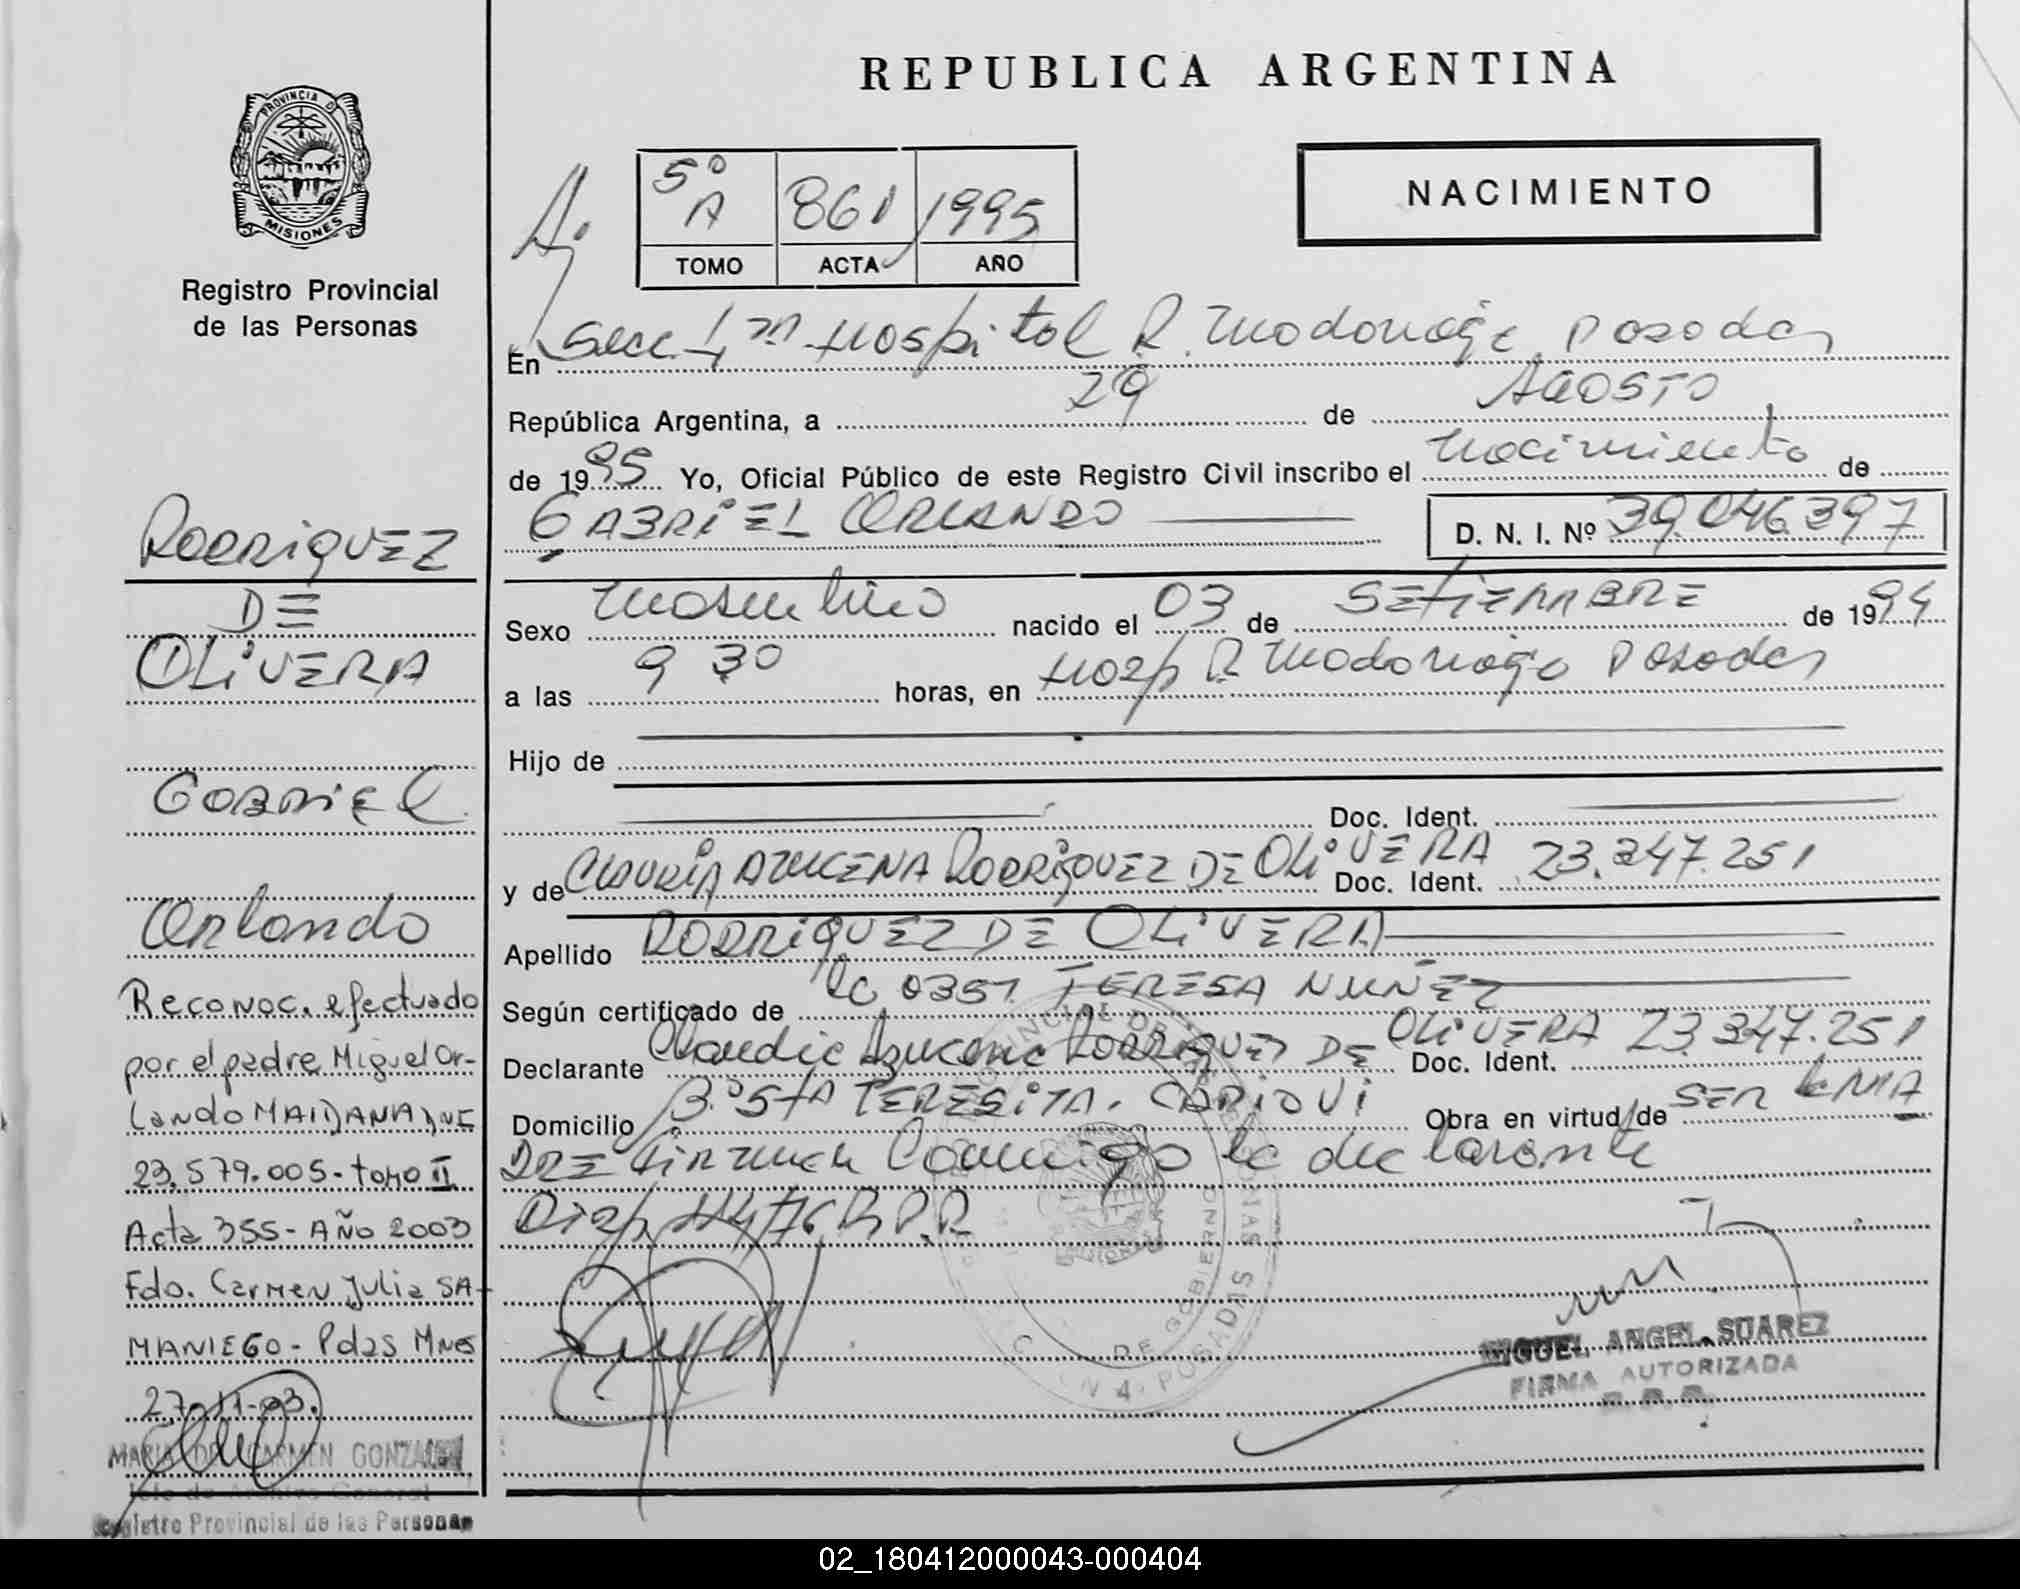 REPUBLICA ARGENTINA
PROVINCIA D
MISIONES
Registro Provincial
de las Personas
5º A 861 1995
TOMO ACTA AÑO
NACIMIENTO
En Secc. 1ra Hospital R. Madariaga Posadas
República Argentina, a 29 de AGOSTO
de 1995 Yo, Oficial Público de este Registro Civil inscribo el nacimiento de
GABRIEL ORLANDO
D. N. I. Nº 39.046.397
Sexo masculino nacido el 03 de SETIEMBRE de 1994
a las 9 30 horas, en Hosp R. Madariaga Posadas
Hijo de
Doc. Ident.
y de CLAUDIA AZUCENA RODRIGUEZ DE OLIVERA Doc. Ident. 23.347.251
Apellido RODRIGUEZ DE OLIVERA
Según certificado de 0351 TERESA NUÑEZ
Declarante Claudia Azucena RODRIGUEZ DE OLIVERA Doc. Ident. 23.347.251
Domicilio Bº STA TERESITA. Obra en virtud de SER LA MA
DRE firman Conmigo la declarante
Disp. 114/76 R.P.P.
RODRIGUEZ
DE
OLIVERA
Gabriel
Orlando
Reconoc. efectuado
por el padre Miguel Or-
lando MAIDANA DNI
23.579.005 - tomo II
Acta 355 - Año 2003
Fdo. Carmen Julia SA-
MANIEGO - Pdas Mnes
27-11-03.
MARIA DEL CARMEN GONZALEZ
Jefe de Archivo General
Registro Provincial de las Personas
DE GOBIERNO
POSADAS
MIGUEL ANGEL SUAREZ
FIRMA AUTORIZADA
R. P. P.
02_180412000043-000404